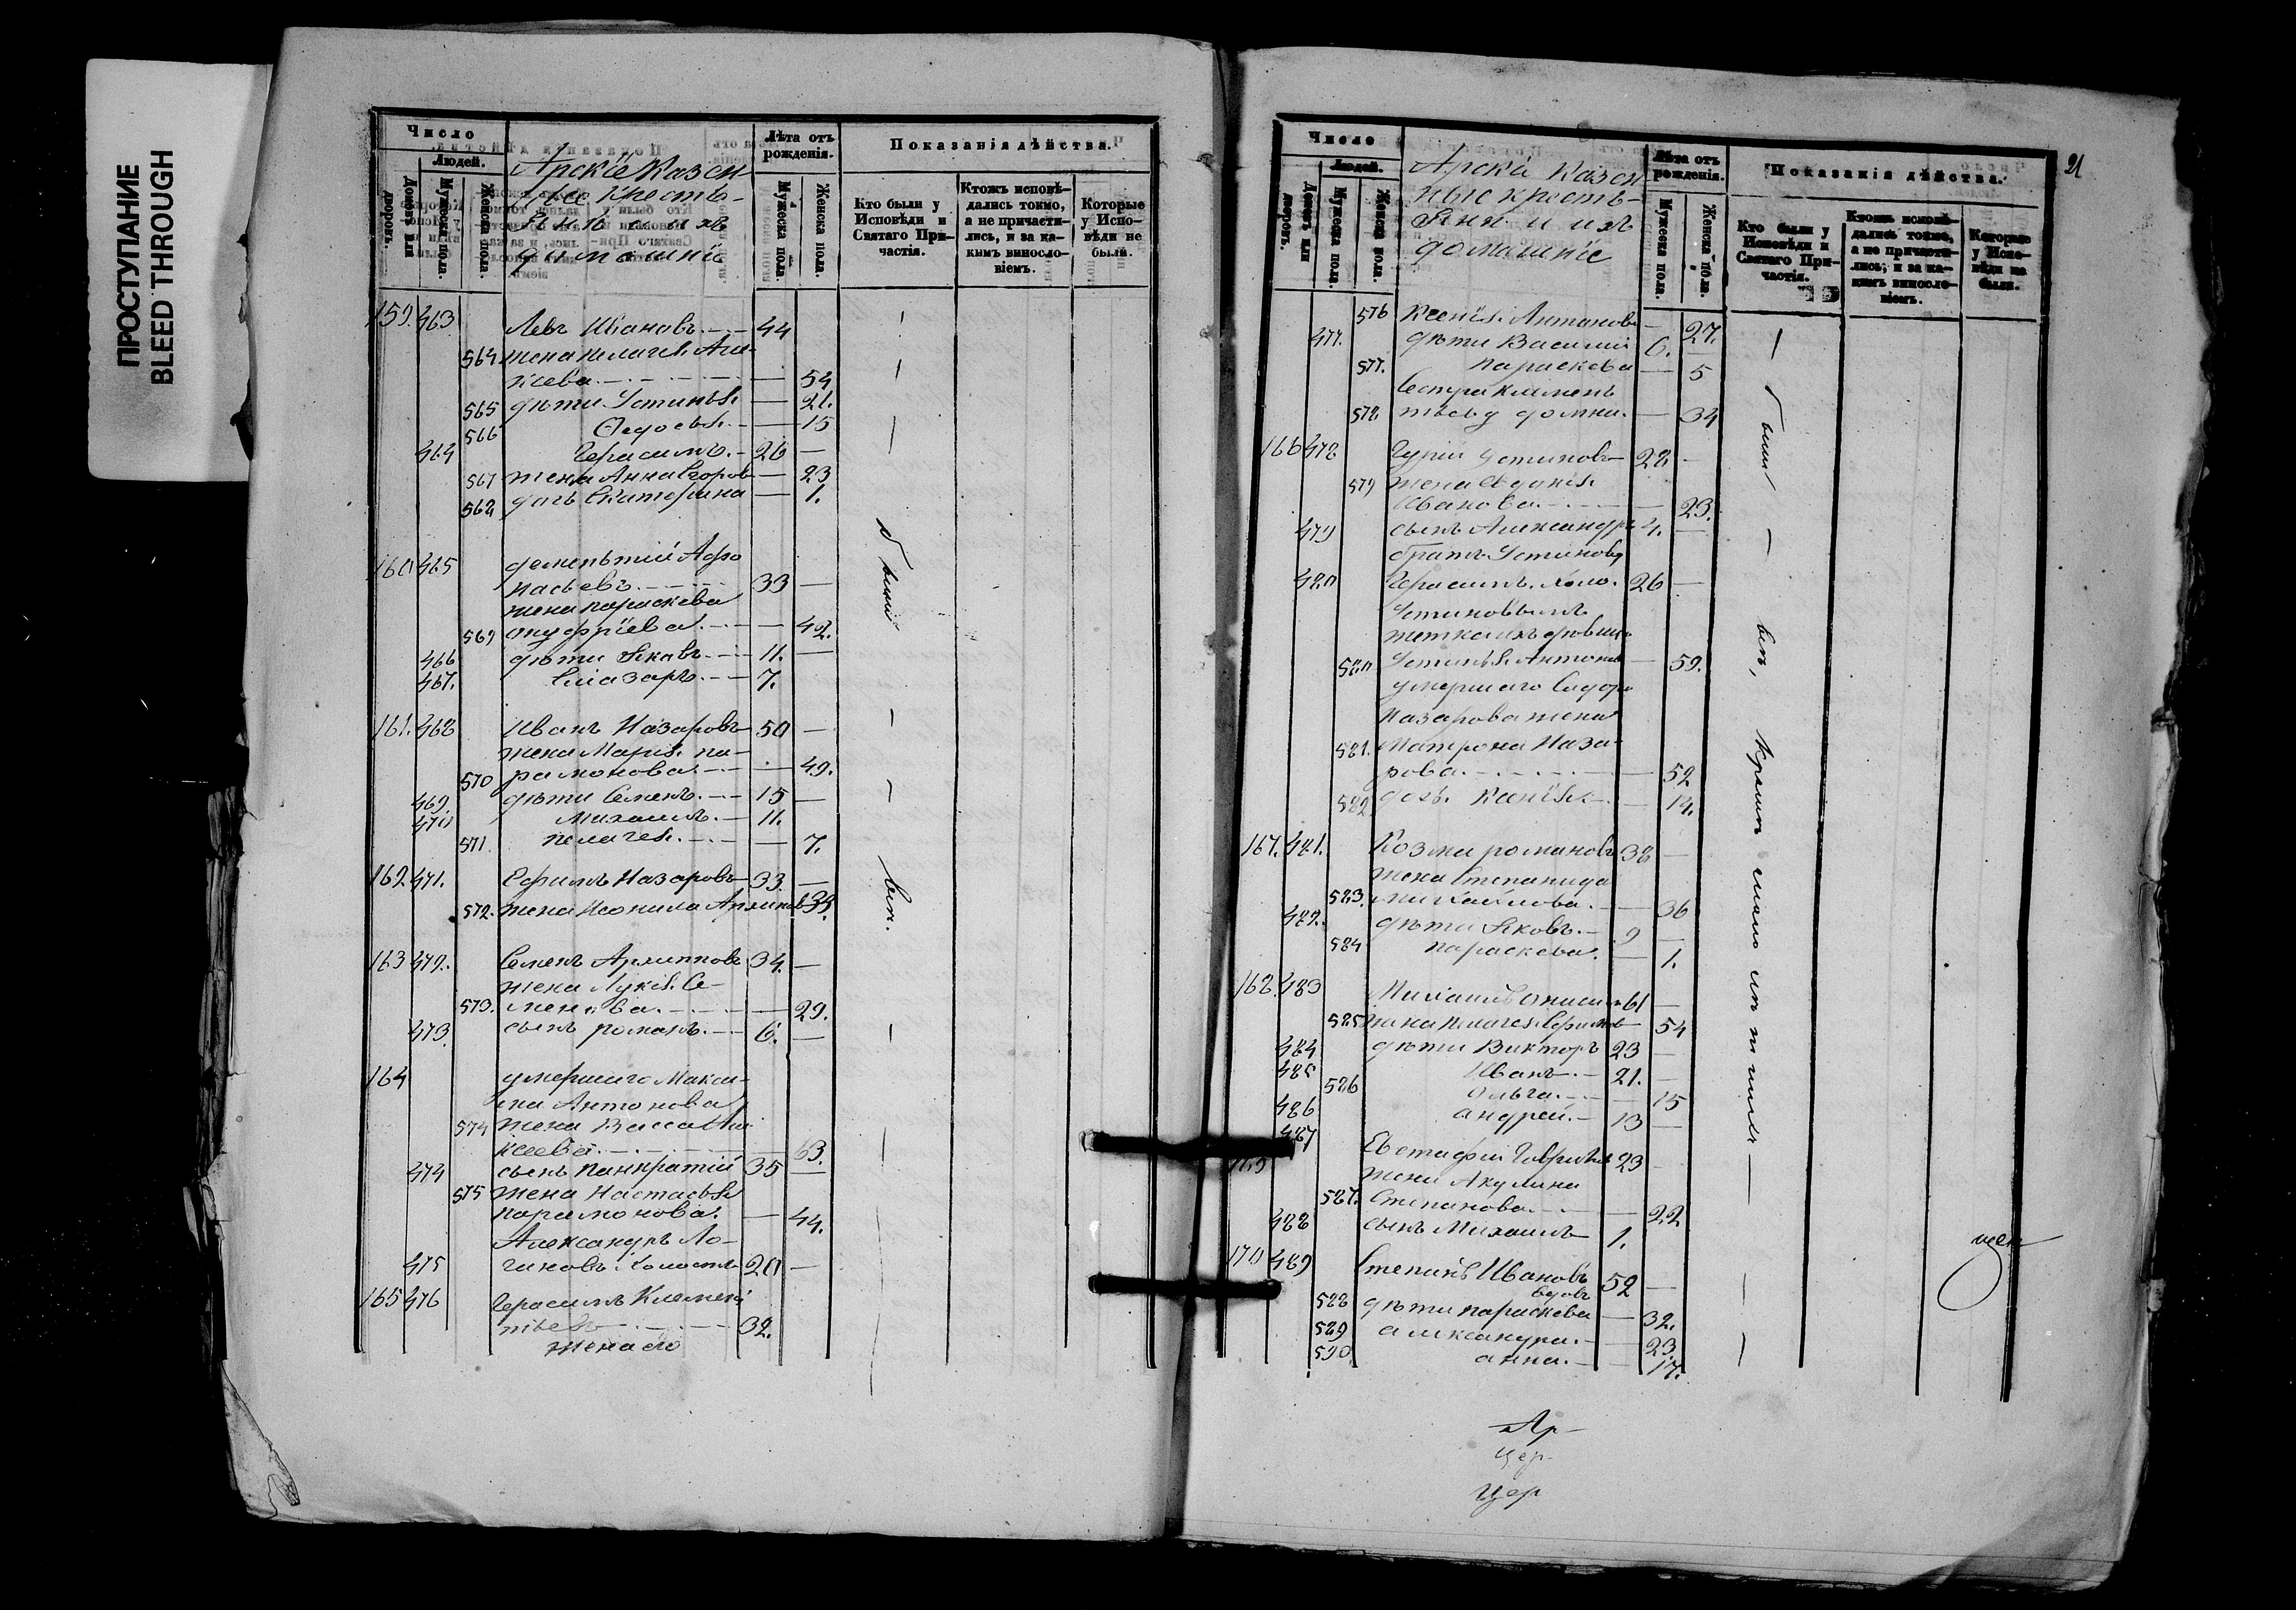 ПРОСТУПАНИЕ
BLEED THROUGH
Число
Людей.
Домовъ или дворовъ.
Мужеска пола.
Женска пола.
Арскіе Казен
ные кресть-
яне и ихъ
домашніе
Лѣта отъ рожденія.
Мужеска пола.
Женска пола.
Показанія дѣйства.
Кто были у Исповѣди и Святаго Причастія.
Ктожъ исповѣдались токмо, а не причастились, и за какимъ винословіемъ.
Которые у Исповѣди не были.
159. 463 Левъ Ивановъ 44
564 жена Пелагея Але-
ксева 54
565 дѣти Устинья 21.
566 Ѳедосья 15
464 Герасимъ 26
567 жена Анна Егоров 23
568 дочь Екатерина 1.
160 465 Дементій Афо
насьевъ 33
жена параскева
569 онуфріева 42.
466 дѣти Яковъ 11.
467. Елазаръ 7.
161. 468 Иванъ Назаровъ 50
жена Марія па-
570 рамонова 49.
469. дѣти Семенъ 15
470 Михаилъ 11.
571 пелагея 7.
162 471. Ефимъ Назаровъ 33
572. жена Неонила Архипов 33.
163 472. Семенъ Архиповъ 34.
жена Лукія Се-
573. менова 29.
473. сынъ романъ 6.
164 умершаго Макси-
ма Антонова
574 жена Васса Але
ксеева 63.
474 сынъ Панкратій 35
575 жена Настасья
парамонова 44.
Александръ Ло-
475 гиновъ холостъ 20
165 476 Герасимъ Климен
тьевъ 32.
жена его
были
всѣ.
21
Число
Людей.
Домовъ или дворовъ.
Мужеска пола.
Женска пола.
Арскіе Казен
ные кресть-
яне и ихъ
домашніе
Лѣта отъ рожденія.
Мужеска пола.
Женска пола.
Показанія дѣйства.
Кто были у Исповѣди и Святаго Причастія.
Ктожъ исповѣдались токмо, а не причастились, и за какимъ винословіемъ.
Которые у Исповѣди не были.
576 Ксенія Антонова 27.
477. дѣти Василій 6.
577. параскева 5
Сестра Климен
578 тьеву домна 34
166 478 Гурій Устиновъ 28
579 жена Евдокія
Иванова 23.
479 сынъ Александръ 4.
братъ Устинову
480 Герасимъ холо. 26
Устиновымъ
тетка
580 Устинья Антонов 59.
умершаго Сидора
Назарова жена
581. Матрона Наза-
рова 52
582 дочь Ксенія 14.
167. 481. Козма романовъ 38
жена Степанида
583. михайлова 36
482. дѣти Яковъ 9
584 параскева 1.
168. 483 Михаилъ Анисим 61
585 жена Пелагея Ефимов 54
484 дѣти Викторъ 23
485 Иванъ 21.
586 Ольга 15
486 андрей 13
169 487 Евстафій Гаврилов 23
жена Акулина
587. Степанова 22
488 сынъ Михаилъ 1.
170 489 Степанъ Ивановъ 52
вдовъ
588 дѣти параскева 32.
589 александра 23.
590 анна 17.
были
всѣ,
Ар
Цер
Цер